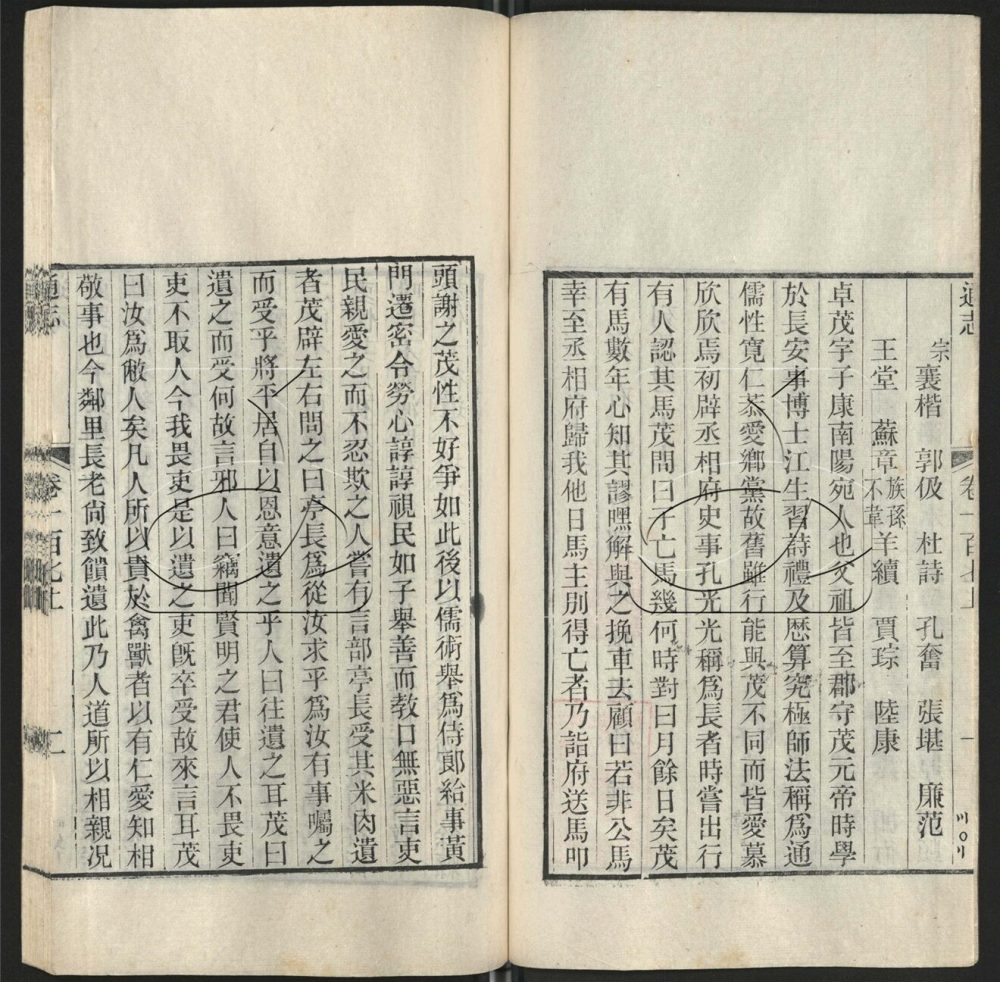 通志
卷一百七上
一
宗 襄楷 郭伋 杜詩 孔奮 張堪 廉范
王堂 蘇章 族孫不韋 羊續 賈琮 陸康
卓茂字子康南陽宛人也父祖皆至郡守茂元帝時學
於長安事博士江生習詩禮及歷算究極師法稱爲通
儒性寬仁恭愛鄉黨故舊雖行能與茂不同而皆愛慕
欣欣焉初辟丞相府史事孔光光稱爲長者時嘗出行
有人認其馬茂問曰子亡馬幾何時對曰月餘日矣茂
有馬數年心知其謬嘿解與之挽車去顧曰若非公馬
幸至丞相府歸我他日馬主別得亡者乃詣府送馬叩
頭謝之茂性不好爭如此後以儒術舉爲侍郎給事黃
門遷密令勞心諄諄視民如子舉善而教口無惡言吏
民親愛之而不忍欺之人嘗有言部亭長受其米肉遺
者茂辟左右問之曰亭長爲從汝求乎爲汝有事囑之
而受乎將平居自以恩意遺之乎人曰往遺之耳茂曰
遺之而受何故言邪人曰竊聞賢明之君使人不畏吏
吏不取人今我畏吏是以遺之吏旣卒受故來言耳茂
曰汝爲敝人矣凡人所以貴於禽獸者以有仁愛知相
敬事也今鄰里長老尚致饋遺此乃人道所以相親况
通志
卷一百七上
二